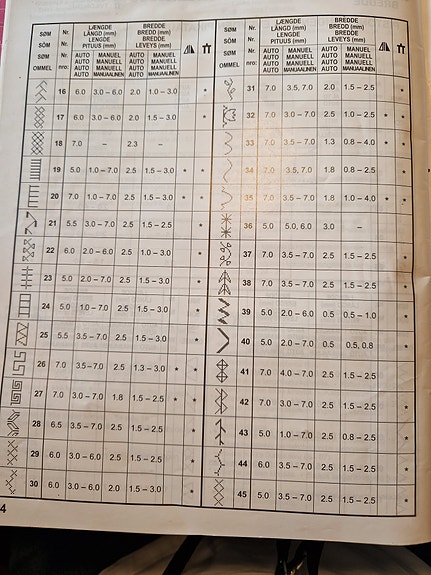 SØM Nr. LÆNGDE BREDDE
SÖM Nr. LÄNGD (mm) BREDD (mm)
SØM Nr. LENGDE BREDDE
OMMEL nro: PITUUS (mm) LEVEYS (mm)
AUTO MANUEL AUTO MANUEL
AUTO MANUELL AUTO MANUELL
AUTO MANUELL AUTO MANUELL
AUTO MANUAALINEN AUTO MANUAALINEN
16 6.0 3.0 – 6.0 2.0 1.0 – 3.0 *
17 6.0 3.0 – 6.0 2.0 1.5 – 3.0 *
18 7.0 – 2.3 –
19 5.0 1.0 – 7.0 2.5 1.5 – 3.0 * *
20 7.0 1.0 – 7.0 2.5 1.5 – 3.0 * *
21 5.5 3.0 – 7.5 2.5 1.5 – 2.5 *
22 6.0 2.0 – 6.0 2.5 1.0 – 3.0 *
23 5.0 2.0 – 7.0 2.5 1.5 – 3.0 *
24 5.0 1.0 – 7.0 2.5 1.5 – 3.0 *
25 5.5 3.5 – 7.0 2.5 1.5 – 3.0 *
26 7.0 3.5 – 7.0 2.5 1.3 – 3.0 * *
27 7.0 3.0 – 7.0 1.8 1.5 – 2.5 * *
28 6.5 3.5 – 7.0 2.5 1.5 – 2.5 *
29 6.0 3.0 – 6.0 2.5 1.5 – 3.0 *
30 6.0 3.0 – 6.0 2.0 1.5 – 3.0 *
SØM Nr. LÆNGDE BREDDE
SÖM Nr. LÄNGD (mm) BREDD (mm)
SØM Nr. LENGDE BREDDE
OMMEL nro: PITUUS (mm) LEVEYS (mm)
AUTO MANUEL AUTO MANUEL
AUTO MANUELL AUTO MANUELL
AUTO MANUELL AUTO MANUELL
AUTO MANUAALINEN AUTO MANUAALINEN
31 7.0 3.5, 7.0 2.0 1.5 – 2.5 *
32 7.0 3.0 – 7.0 2.5 1.0 – 2.5 *
33 7.0 3.5 – 7.0 1.3 0.8 – 4.0 * *
34 7.0 3.5, 7.0 1.8 0.8 – 2.5 *
35 7.0 3.5 – 7.0 1.8 1.0 – 4.0 * *
36 5.0 5.0, 6.0 3.0 –
37 7.0 3.5 – 7.0 2.5 1.5 – 2.5 *
38 7.0 3.5 – 7.0 2.5 1.5 – 2.5 *
39 5.0 2.0 – 6.0 0.5 0.5 – 1.0 *
40 5.0 2.0 – 7.0 0.5 0.5, 0.8 *
41 7.0 4.0 – 7.0 2.5 1.5 – 2.5 *
42 7.0 3.0 – 7.0 2.5 1.5 – 2.5 *
43 5.0 1.0 – 7.0 2.5 0.8 – 2.5 *
44 6.0 3.5 – 7.0 2.5 1.5 – 2.5 *
45 5.0 3.5 – 7.0 2.5 1.5 – 2.5 *
4